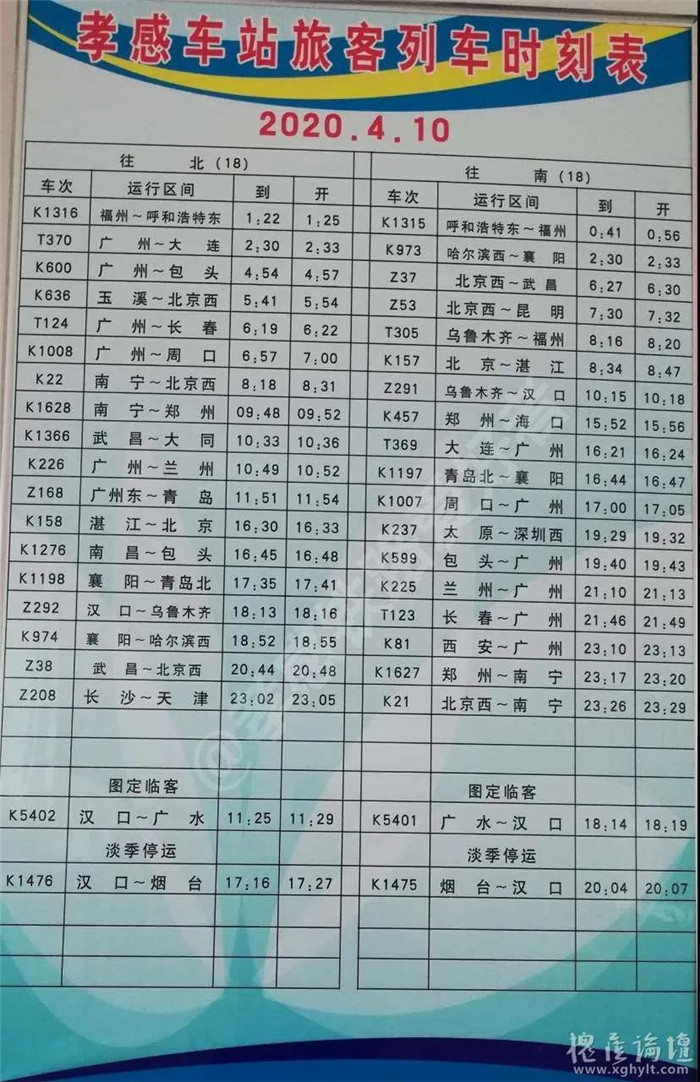 孝感车站旅客列车时刻表
2020.4.10
往 北(18) 往 南(18)
车次 运行区间 到 开 车次 运行区间 到 开
K1316 福州～呼和浩特东 1:22 1:25 K1315 呼和浩特东～福州 0:41 0:56
T370 广 州～大 连 2:30 2:33 K973 哈尔滨西～襄 阳 2:30 2:33
K600 广 州～包 头 4:54 4:57 Z37 北京西～武 昌 6:27 6:30
K636 玉 溪～北京西 5:41 5:54 Z53 北京西～昆 明 7:30 7:32
T124 广 州～长 春 6:19 6:22 T305 乌鲁木齐～福州 8:16 8:20
K1008 广 州～周 口 6:57 7:00 K157 北 京～湛 江 8:34 8:47
K22 南 宁～北京西 8:18 8:31 Z291 乌鲁木齐～汉 口 10:15 10:18
K1628 南 宁～郑 州 09:48 09:52 K457 郑 州～海 口 15:52 15:56
K1366 武 昌～大 同 10:33 10:36 T369 大 连～广 州 16:21 16:24
K226 广 州～兰 州 10:49 10:52 K1197 青岛北～襄 阳 16:44 16:47
Z168 广州东～青 岛 11:51 11:54 K1007 周 口～广 州 17:00 17:05
K158 湛 江～北 京 16:30 16:33 K237 太 原～深圳西 19:29 19:32
K1276 南 昌～包 头 16:45 16:48 K599 包 头～广 州 19:40 19:43
K1198 襄 阳～青岛北 17:35 17:41 K225 兰 州～广 州 21:10 21:13
Z292 汉 口～乌鲁木齐 18:13 18:16 T123 长 春～广 州 21:46 21:49
K974 襄 阳～哈尔滨西 18:52 18:55 K81 西 安～广 州 23:10 23:13
Z38 武 昌～北京西 20:44 20:48 K1627 郑 州～南 宁 23:17 23:20
Z208 长 沙～天 津 23:02 23:05 K21 北京西～南 宁 23:26 23:29
图定临客 图定临客
K5402 汉 口～广 水 11:25 11:29 K5401 广 水～汉 口 18:14 18:19
淡季停运 淡季停运
K1476 汉 口～烟 台 17:16 17:27 K1475 烟 台～汉 口 20:04 20:07
槐荫论坛
www.xghylt.com